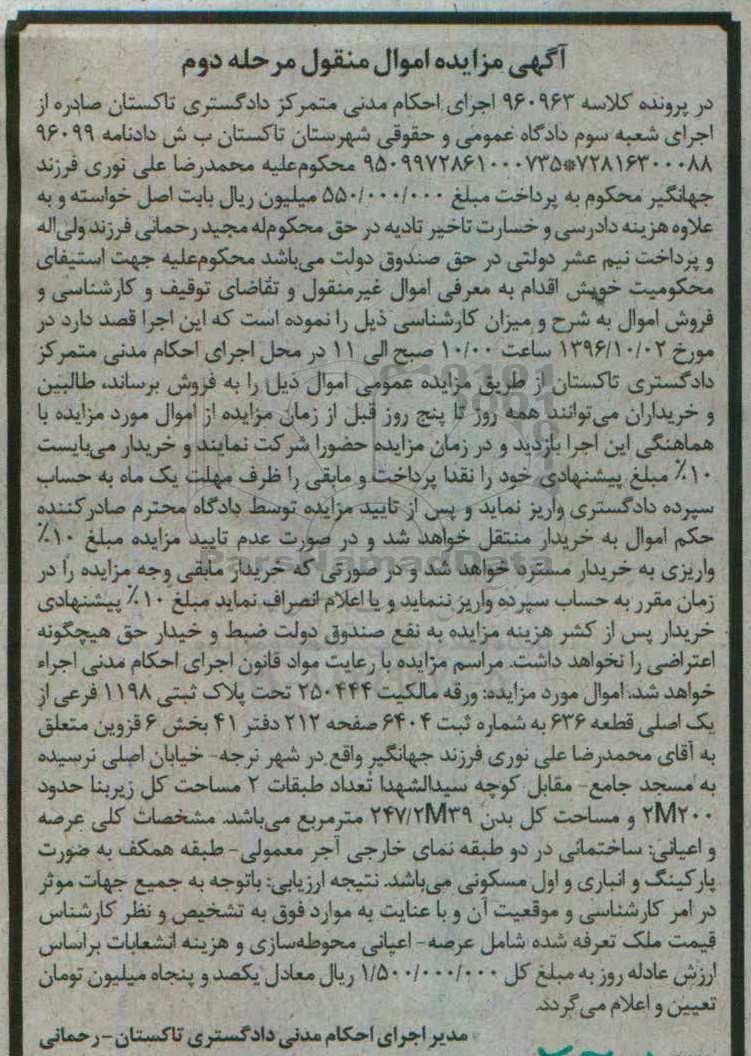 آگهی مزایده اموال منقول مرحله دوم
در پرونده کلاسه ۹۶۰۹۶۳ اجرای احکام مدنی متمرکز دادگستری تاکستان صادره از
اجرای شعبه سوم دادگاه عمومی و حقوقی شهرستان تاکستان ب ش دادنامه ۹۶۰۹۹
۷۲۸۱۶۳۰۰۰۸۸*۹۵۰۹۹۷۲۸۶۱۰۰۰۷۳۵ محکوم‌علیه محمدرضا علی نوری فرزند
جهانگیر محکوم به پرداخت مبلغ ۵۵۰/۰۰۰/۰۰۰ میلیون ریال بابت اصل خواسته و به
علاوه هزینه دادرسی و خسارت تاخیر تادیه در حق محکوم‌له مجید رحمانی فرزند ولی‌اله
و پرداخت نیم عشر دولتی در حق صندوق دولت می‌باشد محکوم‌علیه جهت استیفای
محکومیت خویش اقدام به معرفی اموال غیرمنقول و تقاضای توقیف و کارشناسی و
فروش اموال به شرح و میزان کارشناسی ذیل را نموده است که این اجرا قصد دارد در
مورخ ۱۳۹۶/۱۰/۰۲ ساعت ۱۰/۰۰ صبح الی ۱۱ در محل اجرای احکام مدنی متمرکز
دادگستری تاکستان از طریق مزایده عمومی اموال ذیل را به فروش برساند، طالبین
و خریداران می‌توانند همه روز تا پنج روز قبل از زمان مزایده از اموال مورد مزایده با
هماهنگی این اجرا بازدید و در زمان مزایده حضورا شرکت نمایند و خریدار می‌بایست
۱۰٪ مبلغ پیشنهادی خود را نقدا پرداخت و مابقی را ظرف مهلت یک ماه به حساب
سپرده دادگستری واریز نماید و پس از تایید مزایده توسط دادگاه محترم صادرکننده
حکم اموال به خریدار منتقل خواهد شد و در صورت عدم تایید مزایده مبلغ ۱۰٪
واریزی به خریدار مسترد خواهد شد و در صورتی که خریدار مابقی وجه مزایده را در
زمان مقرر به حساب سپرده واریز ننماید و یا اعلام انصراف نماید مبلغ ۱۰٪ پیشنهادی
خریدار پس از کشر هزینه مزایده به نفع صندوق دولت ضبط و خیدار حق هیچگونه
اعتراضی را نخواهد داشت. مراسم مزایده با رعایت مواد قانون اجرای احکام مدنی اجراء
خواهد شد. اموال مورد مزایده: ورقه مالکیت ۲۵۰۴۴۴ تحت پلاک ثبتی ۱۱۹۸ فرعی از
یک اصلی قطعه ۶۳۶ به شماره ثبت ۶۴۰۴ صفحه ۲۱۲ دفتر ۴۱ بخش ۶ قزوین متعلق
به آقای محمدرضا علی نوری فرزند جهانگیر واقع در شهر نرجه- خیابان اصلی نرسیده
به مسجد جامع- مقابل کوچه سیدالشهدا تعداد طبقات ۲ مساحت کل زیربنا حدود
۲M۲۰۰ و مساحت کل بدن ۲۴۷/۲M۳۹ مترمربع می‌باشد. مشخصات کلی عرصه
و اعیانی: ساختمانی در دو طبقه نمای خارجی آجر معمولی- طبقه همکف به صورت
پارکینگ و انباری و اول مسکونی می‌باشد. نتیجه ارزیابی: باتوجه به جمیع جهات موثر
در امر کارشناسی و موقعیت آن و با عنایت به موارد فوق به تشخیص و نظر کارشناس
قیمت ملک تعرفه شده شامل عرصه- اعیانی محوطه‌سازی و هزینه انشعابات براساس
ارزش عادله روز به مبلغ کل ۱/۵۰۰/۰۰۰/۰۰۰ ریال معادل یکصد و پنجاه میلیون تومان
تعیین و اعلام می‌گردد.
مدیر اجرای احکام مدنی دادگستری تاکستان-رحمانی
ParsNamadData